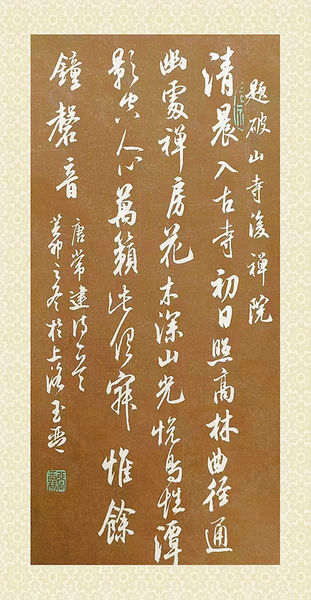 题破山寺後禅院
清晨入古寺初日照高林曲径通
幽處禅房花木深山光悦鸟性潭
影空人心萬籟此俱寂惟餘
鐘磬音
唐常建诗一首
於上海